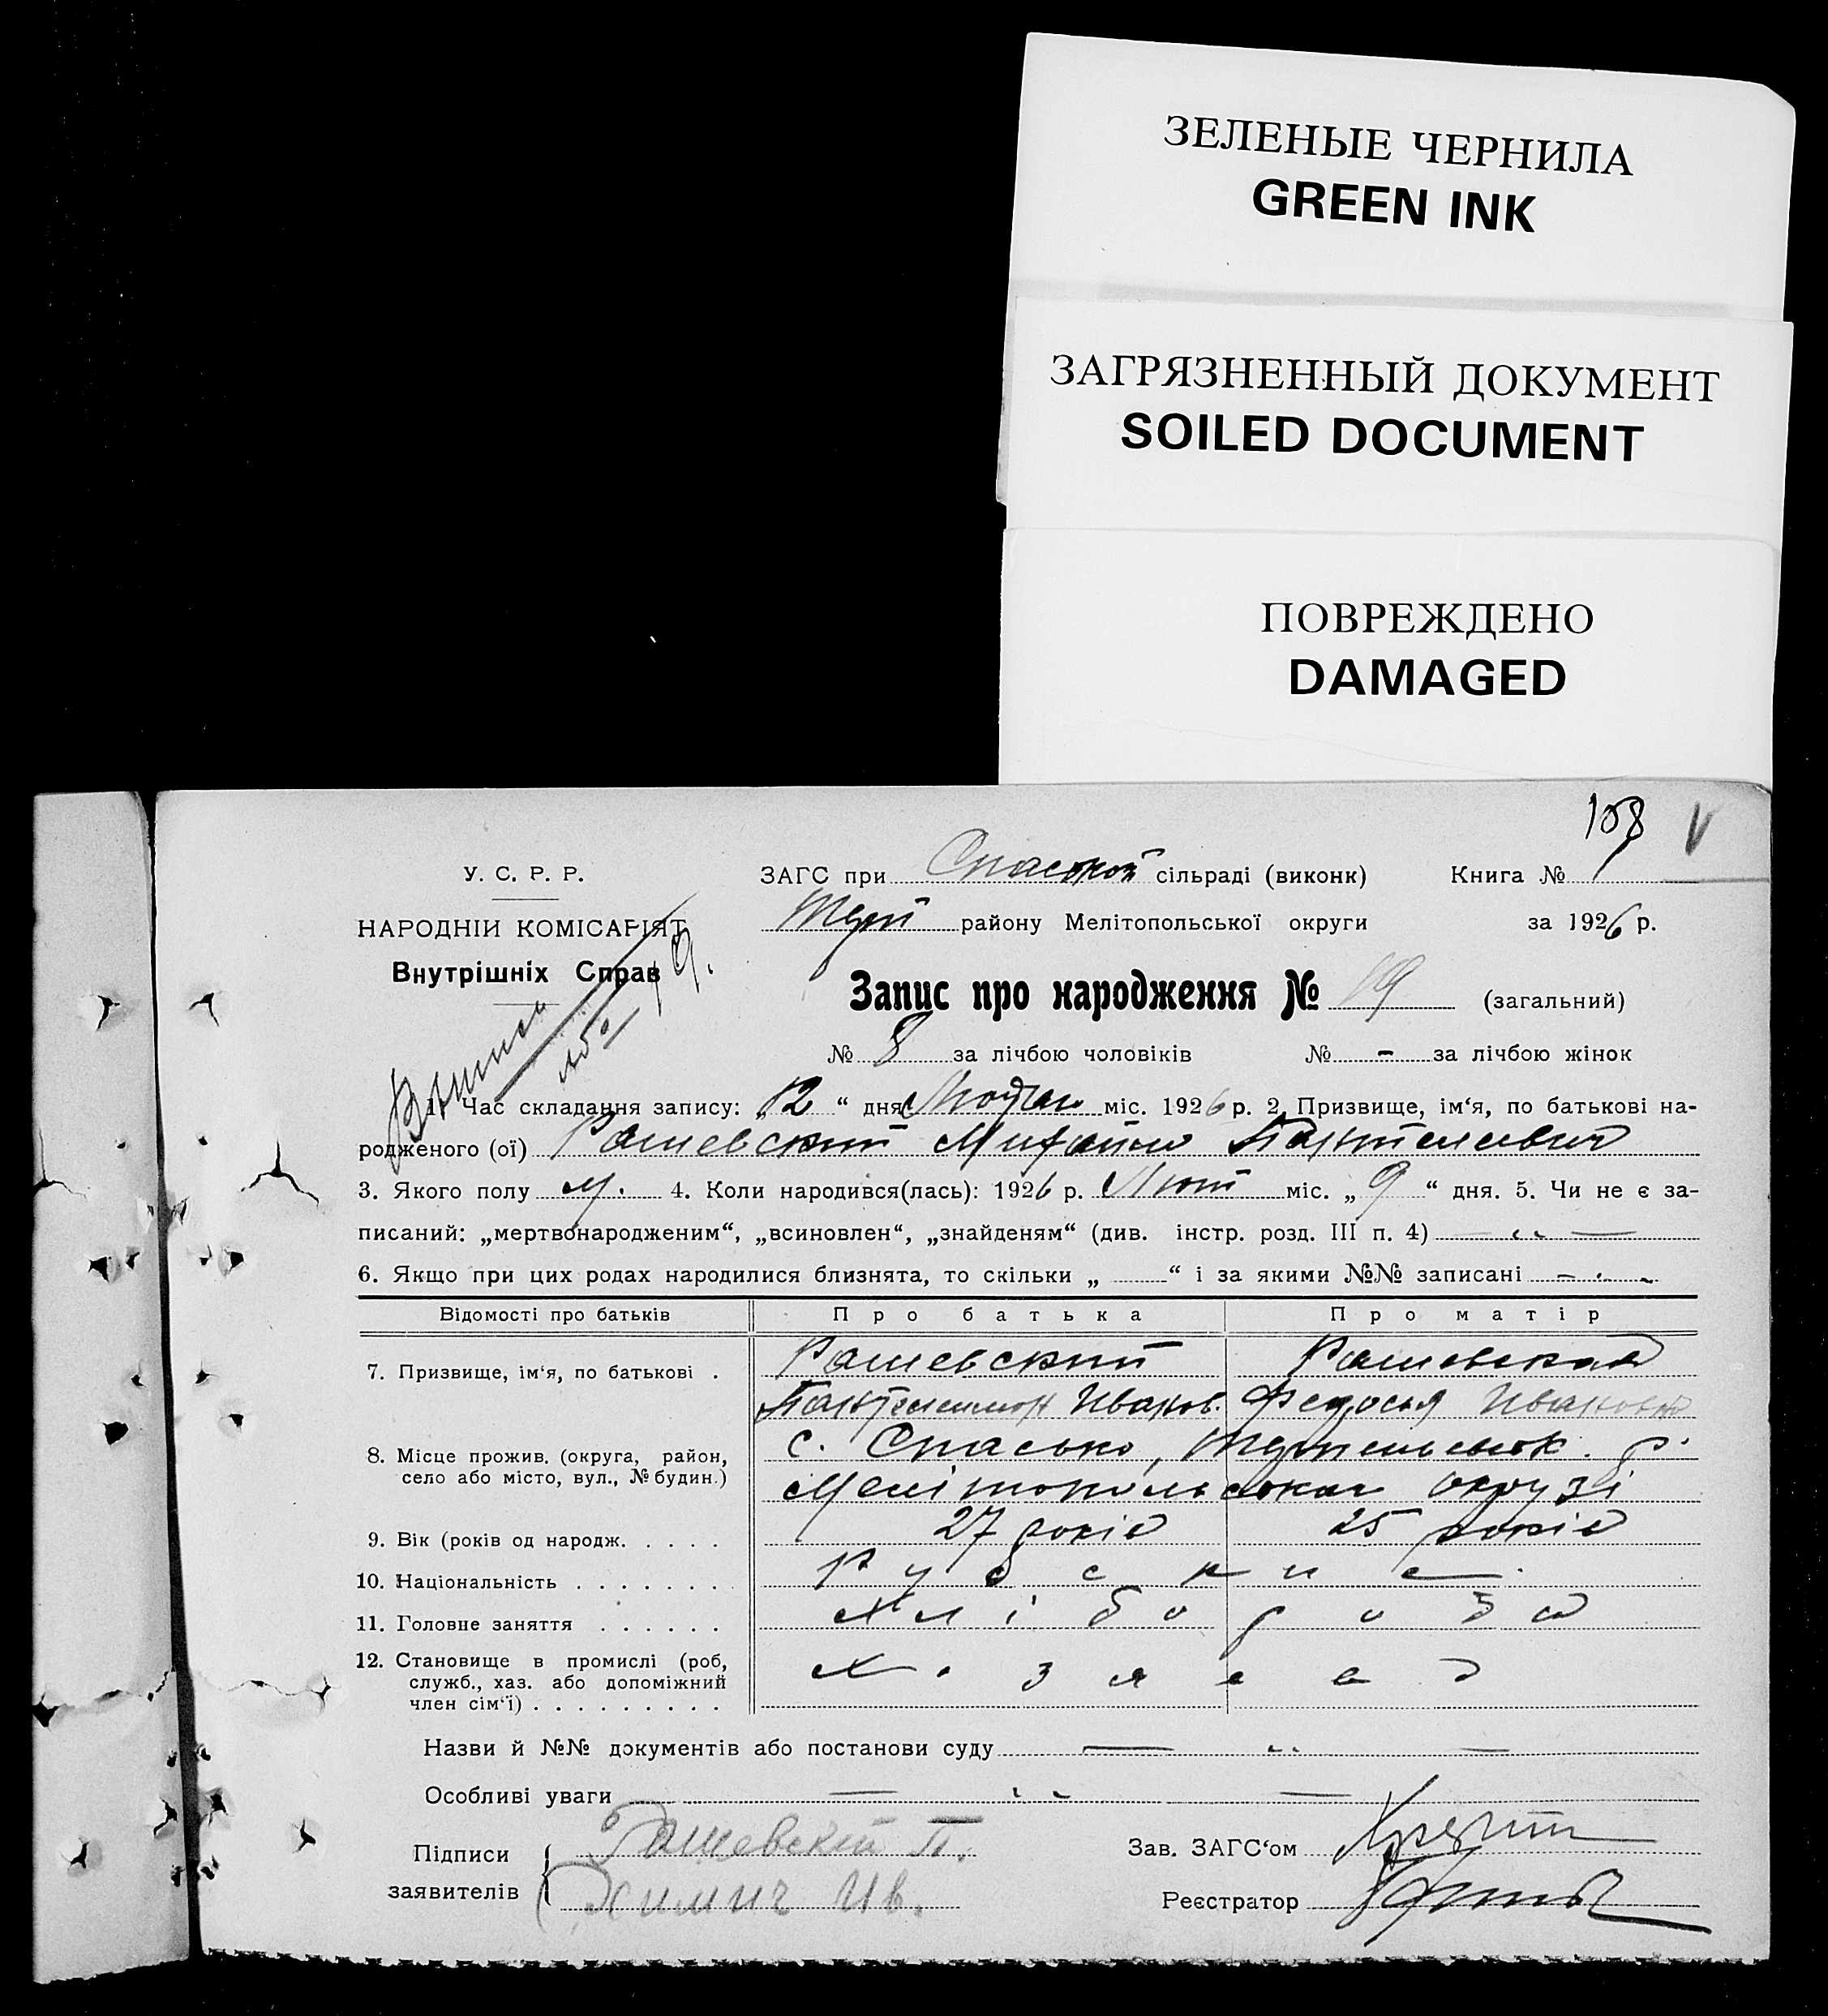 ЗЕЛЕНЫЕ ЧЕРНИЛА
GREEN INK
ЗАГРЯЗНЕННЫЙ ДОКУМЕНТ
SOILED DOCUMENT
ПОВРЕЖДЕНО
DAMAGED
108 V
У. С. Р. Р. ЗАГС при Спаської сільраді (виконк) Книга №
НАРОДНІЙ КОМІСАРІЯТ району Мелітопольської округи за 1926 р.
Внутрішніх Справ
Запис про народження № 19 (загальний)
№ 8 за лічбою чоловіків № - за лічбою жінок
1. Час складання запису: „12“ дня міс. 1926 р. 2. Призвище, ім‘я, по батькові на-
родженого (ої) Рашевский Михайло Пантелеевич
3. Якого полу м. 4. Коли народився(лась): 1926 р. Лют міс. „9“ дня. 5. Чи не є за-
писаний: „мертвонародженим“, „всиновлен“, „знайденям“ (див. інстр. розд. III п. 4) — „ —
6. Якщо при цих родах народилися близнята, то скільки „ “ і за якими №№ записані
Відомості про батьків Про батька Про матір
7. Призвище, ім‘я, по батькові . Рашевский Рашевская
Пантелеимон Иванов. Федосья Ивановна
8. Місце прожив. (округа, район, с. Спасько, р.
село або місто, вул., № будин.) Мелітопольськои окрузі
9. Вік (років од народж. . . . . 27 років 25 років
10. Національність . . . . . . . . Руские
11. Головне заняття . . . . . . Хлібороб
12. Становище в промислі (роб,
служб., хаз. або допоміжний
член сім‘ї) . . . . . . . . .
Назви й №№ документів або постанови суду — „ —
Особливі уваги — „ —
Підписи Рашевскій П. Зав. ЗАГС‘ом
заявителів Химич Ив. Реєстратор